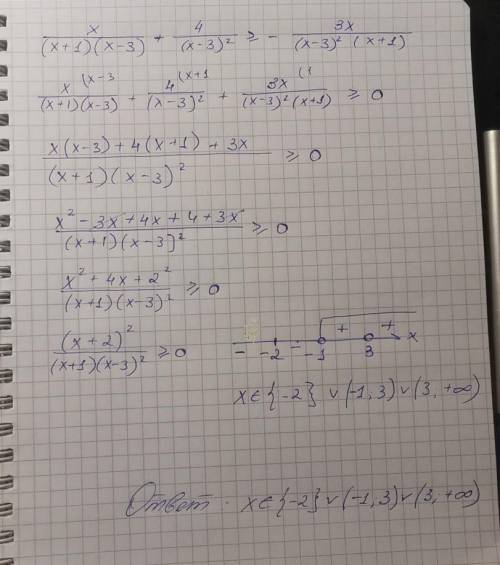 x/((x+1)(x-3)) + 4/(x-3)² ≥ - 3x/((x-3)² (x+1))
x (x-3/((x+1)(x-3)) + 4 (x+1/(x-3)² + 3x (1/((x-3)² (x+1)) ≥ 0
(x(x-3) + 4(x+1) + 3x)/((x+1)(x-3)²) ≥ 0
(x² - 3x + 4x + 4 + 3x)/((x+1)(x-3)²) ≥ 0
(x² + 4x + 2²)/((x+1)(x-3)²) ≥ 0
(x+2)²/((x+1)(x-3)²) ≥ 0
- - + +
-2 -1 3 x
x∈{-2} ∨ (-1,3) ∨ (3,+∞)
Ответ. x∈{-2} ∨ (-1,3) ∨ (3,+∞)